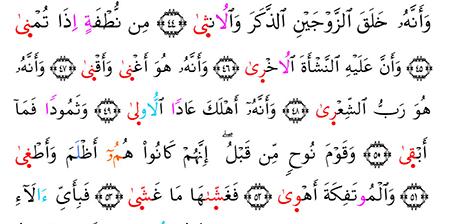 وَأَنَّهُۥ خَلَقَ ٱلزَّوْجَيْنِ ٱلذَّكَرَ وَٱلُانثىٰ ﴿٤٤﴾ مِن نُّطْفَةٍ اِذَا تُمْنىٰ
﴿٤٥﴾ وَأَنَّ عَلَيْهِ ٱلنَّشْأَةَ ٱلُاخْرىٰ ﴿٤٦﴾ وَأَنَّهُۥ هُوَ أَغْنىٰ وَأَقْنىٰ ﴿٤٧﴾ وَأَنَّهُۥ
هُوَ رَبُّ ٱلشِّعْرىٰ ﴿٤٨﴾ وَأَنَّهُۥ أَهْلَكَ عَادًا ٱلُاولىٰ ﴿٤٩﴾ وَثَمُودًا فَمَآ
أَبْقىٰ ﴿٥٠﴾ وَقَوْمَ نُوحٍ مِّن قَبْلُۖ إِنَّهُمْ كَانُوا۟ هُمُۥٓ أَظْلَمَ وَأَطْغىٰ
﴿٥١﴾ وَٱلْمُوتَفِكَةَ أَهْوىٰ ﴿٥٢﴾ فَغَشّىٰهَا مَا غَشّىٰ ﴿٥٣﴾ فَبِأَىِّ ءَالَآءِ